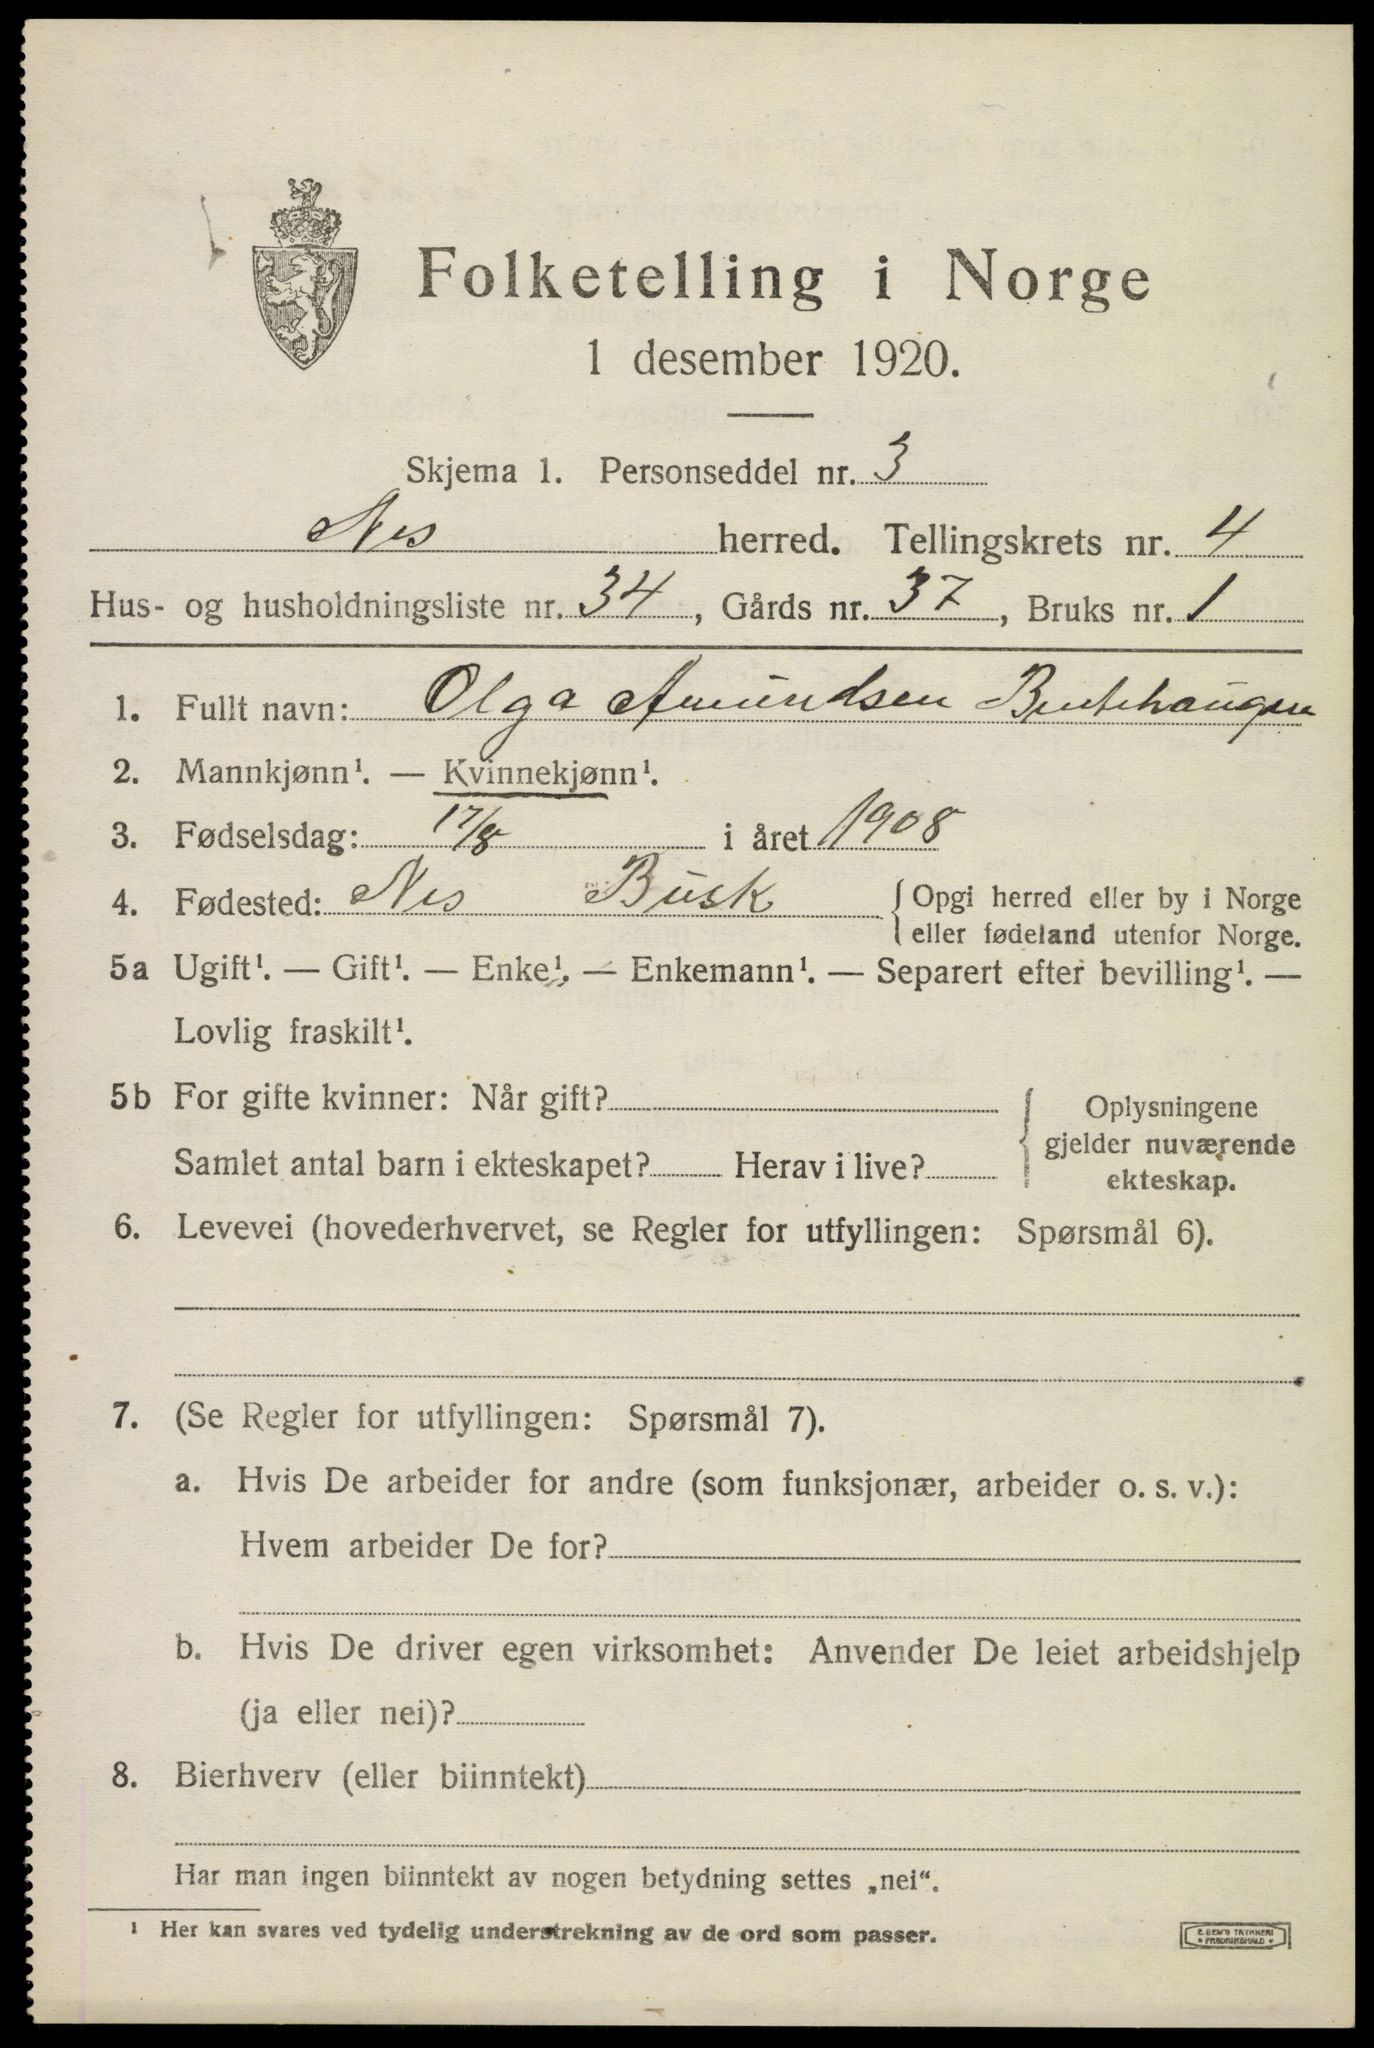 Folketelling i Norge
1 desember 1920.
Skjema 1. Personseddel nr. 3
Nes herred. Tellingskrets nr. 4
Hus- og husholdningsliste nr. 34, Gårds nr. 37, Bruks nr. 1
1. Fullt navn: Olga Amundsen
2. Mannkjønn¹. — Kvinnekjønn¹.
3. Fødselsdag: 17/8 i året 1908
4. Fødested: Nes Busk { Opgi herred eller by i Norge
eller fødeland utenfor Norge.
5a Ugift¹. — Gift¹. — Enke¹, — Enkemann¹. — Separert efter bevilling¹. —
Lovlig fraskilt¹.
5b For gifte kvinner: Når gift?
Samlet antal barn i ekteskapet? Herav i live?
{ Oplysningene
gjelder nuværende
ekteskap.
6. Levevei (hovederhvervet, se Regler for utfyllingen: Spørsmål 6).
7. (Se Regler for utfyllingen: Spørsmål 7).
a. Hvis De arbeider for andre (som funksjonær, arbeider o. s. v.):
Hvem arbeider De for?
b. Hvis De driver egen virksomhet: Anvender De leiet arbeidshjelp
(ja eller nei)?
8. Bierhverv (eller biinntekt)
Har man ingen biinntekt av nogen betydning settes „nei".
¹ Her kan svares ved tydelig understrekning av de ord som passer.
E. SEM'S TRYKKERI
• FREDRIKSHALD •